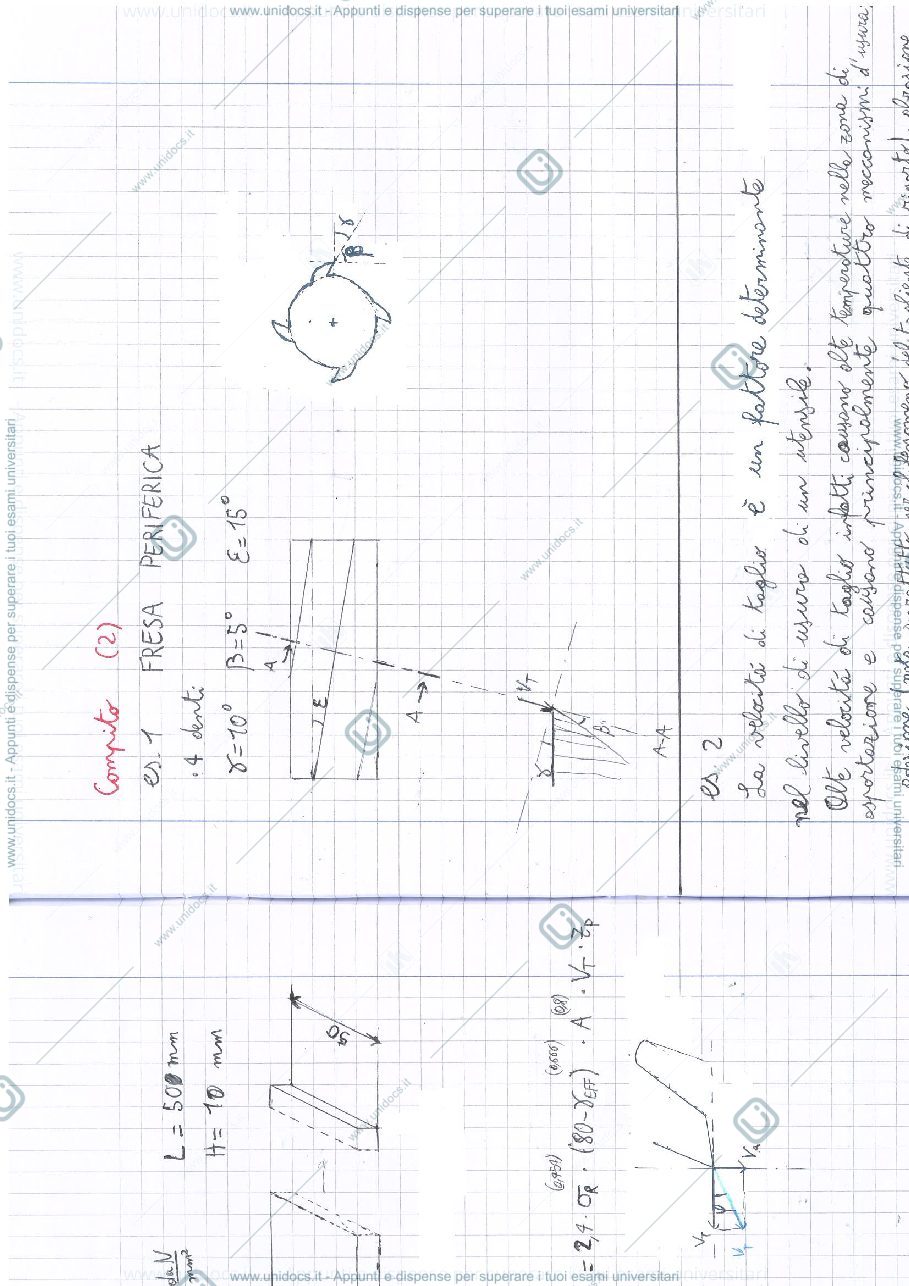 www.unidocs.it - Appunti e dispense per superare i tuoi esami universitari
Compito (2)
es. 1 FRESA PERIFERICA
• 4 denti
γ=10° β=5° ε=15°
A
ε
A
γ
β
γ
V_T
β
A-A
es 2
La velocità di taglio è un fattore determinante
nel livello di usura di un utensile.
Alte velocità di taglio infatti causano alte temperature nella zona di
asportazione e causano principalmente quattro meccanismi d'usura:
daN
mm²
L = 500 mm
H = 10 mm
= 2,4 · σ_R (0,454) · (80-γ_EFF) (0,666) · A (0,8) · V_T · z_p
V_T
V_a
www.unidocs.it - Appunti e dispense per superare i tuoi esami universitari